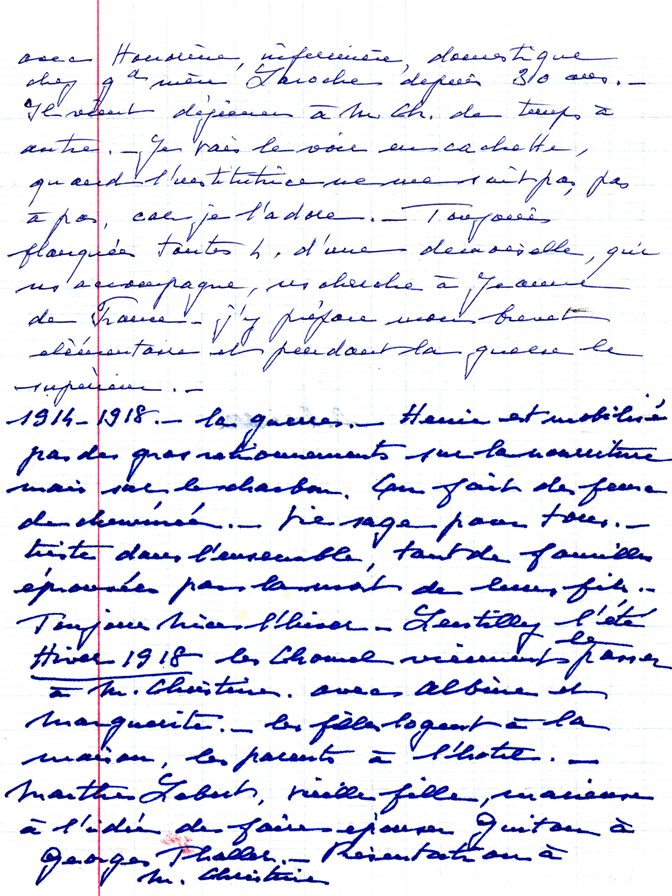 avec Honorine, infirmière, domestique
chez gd mère Laroche depuis 30 ans. –
Il vient déjeuner à M. Ch. de temps à
autre. – Je vais le voir en cachette,
quand l'institutrice ne me suit pas, pas
à pas, car je l'adore. – Toujours
flanquées toutes 4, d'une demoiselle, qui
ns accompagne, ns cherche à Jeanne
de France – j'y prépare mon brevet
élémentaire et pendant la guerre le
supérieur. –
1914-1918. – la guerre. – Henri est mobilisé
pas de gros rationnements sur la nourriture
mais sur le charbon. On fait des feux
de cheminée. – Vie sage pour tous. –
triste dans l'ensemble, tant de familles
éprouvées par la mort de leurs fils. –
Toujours Nice l'hiver – Lentilly l'été
Hiver 1918 les Chomel viennent le passer
à M. Christine. avec Albine et
Marguerite. – les filles logent à la
maison, les parents à l'hotel. –
Marthe Lebert, vieille fille, marieuse
à l'idée de faire épouser Guiton à
Georges Thaller. – Présentation à
M. Christine